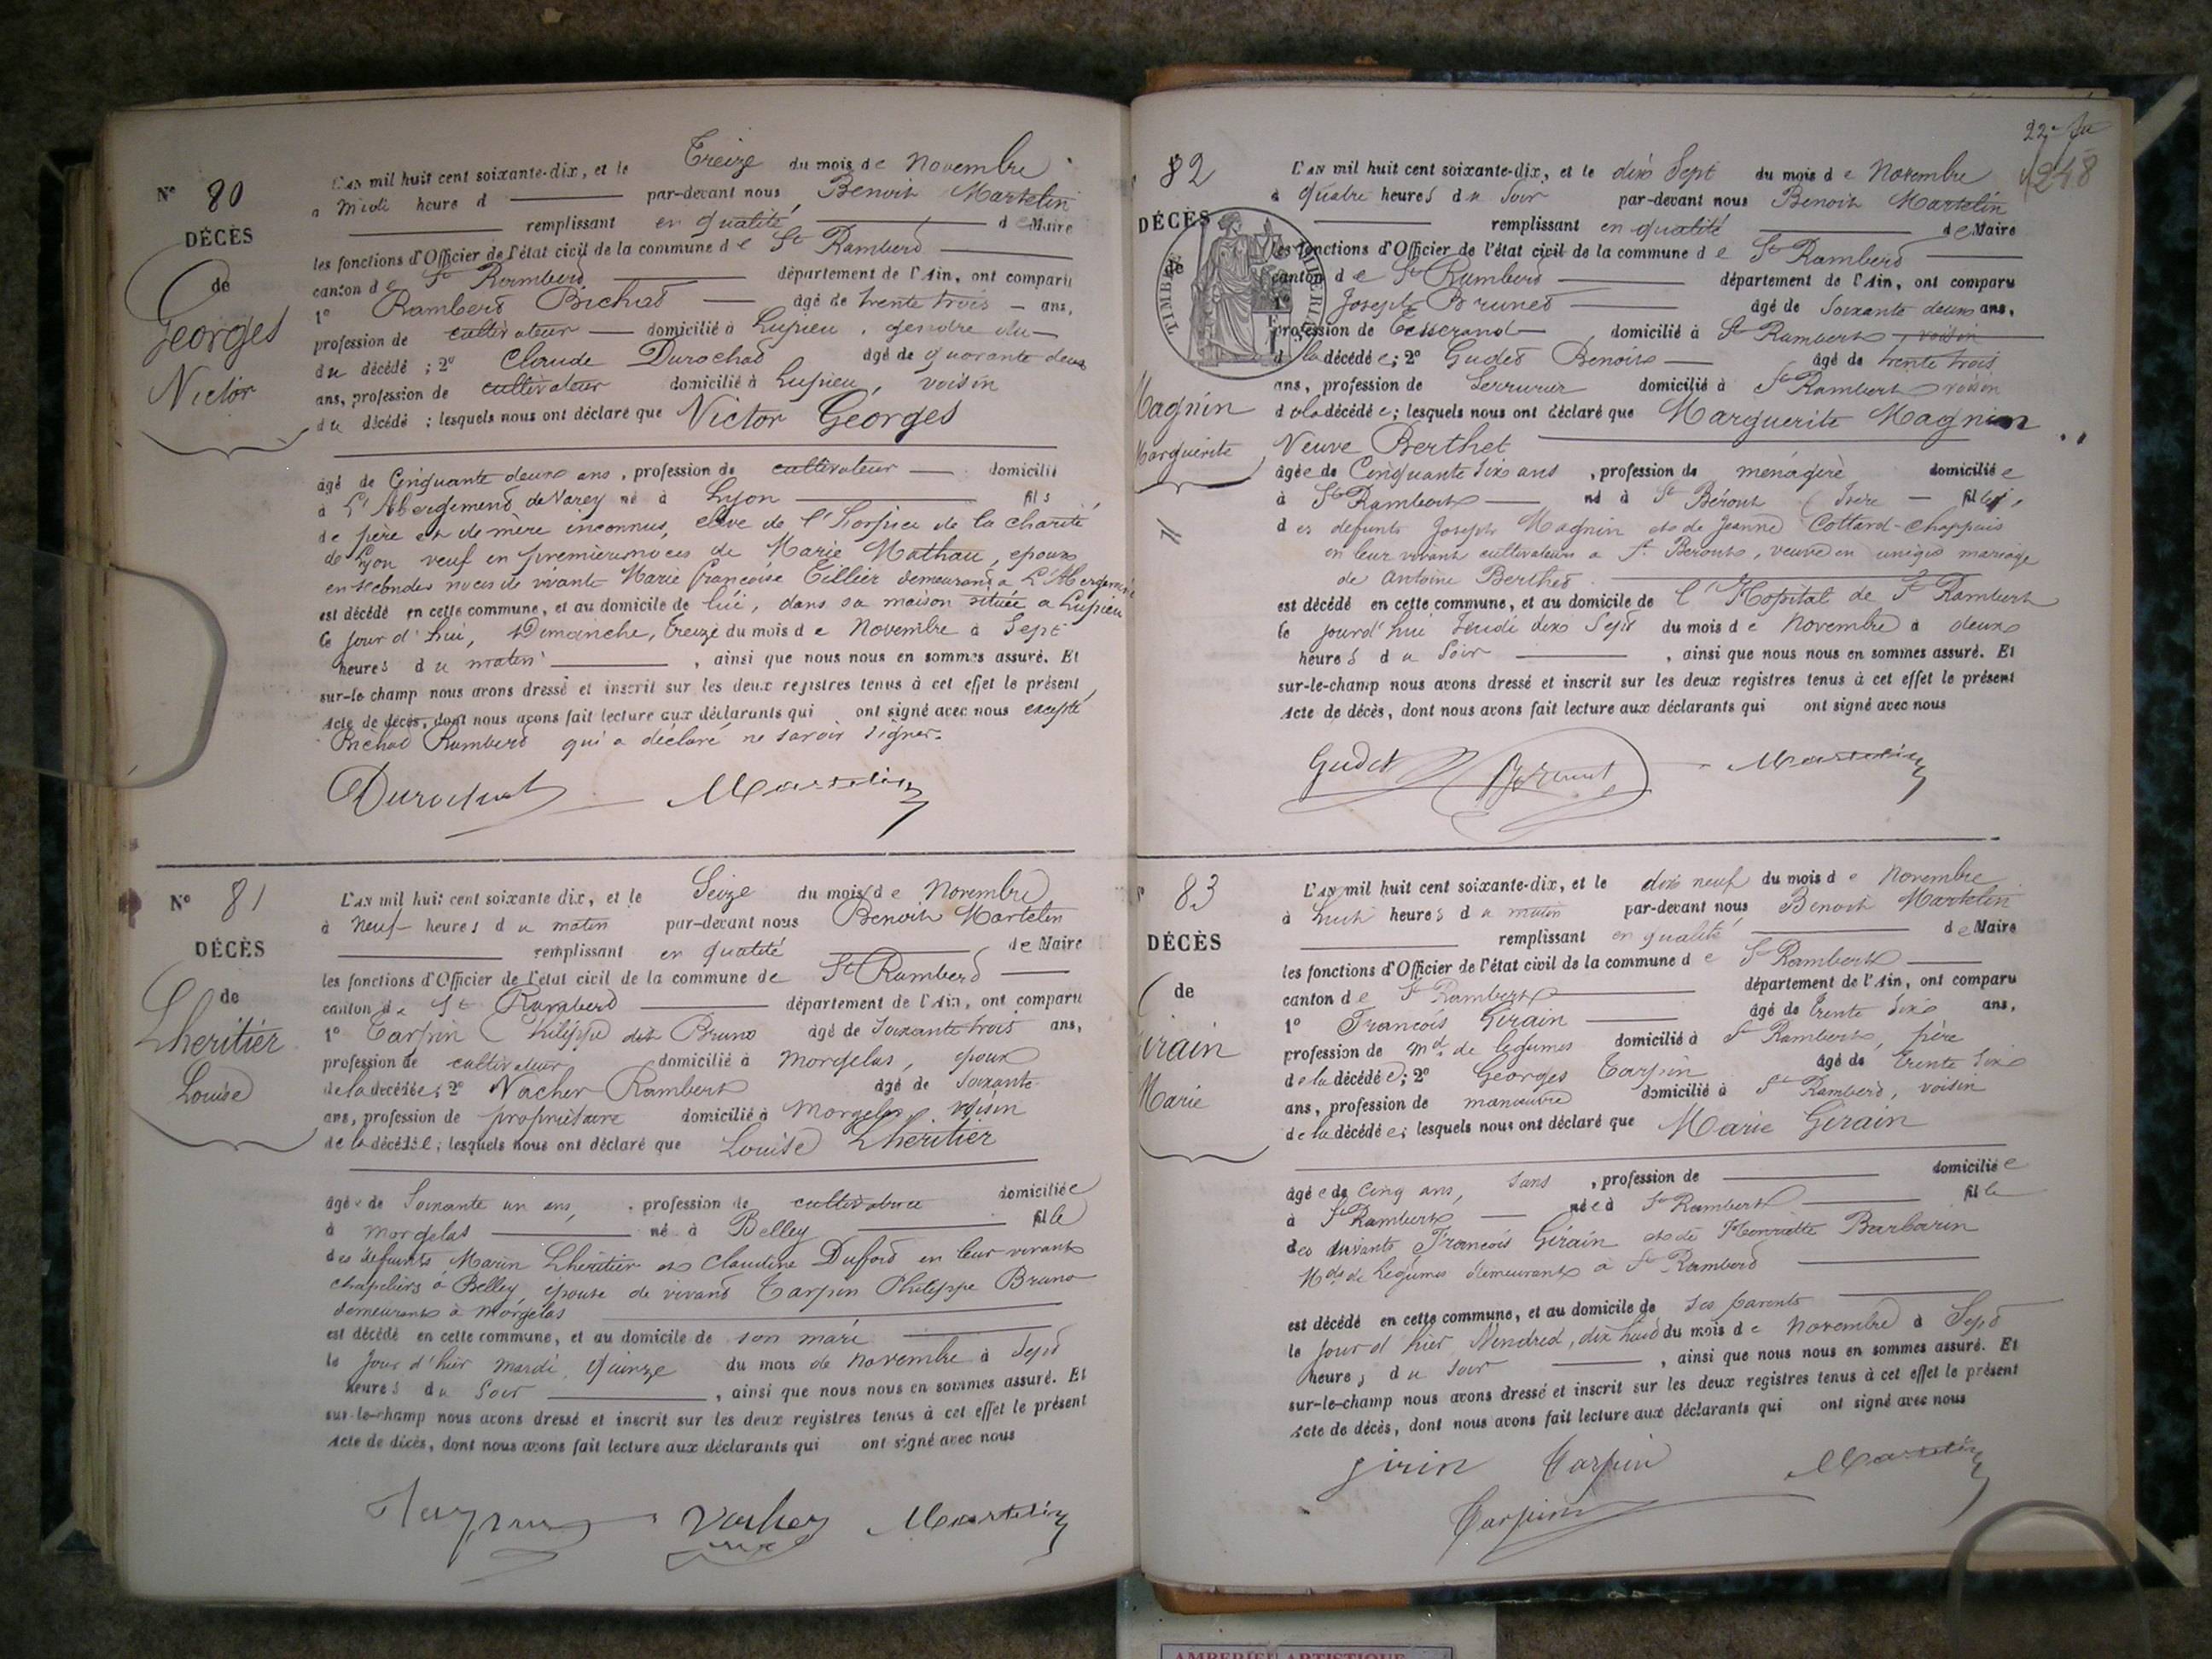 N° 80
DÉCÈS
de
Georges
Victor
L'AN mil huit cent soixante-dix, et le Treize du mois de Novembre
à midi heure d par-devant nous Benoit Martelin
remplissant en qualité de Maire
les fonctions d'Officier de l'état civil de la commune de St Rambert
canton de St Rambert département de l'Ain, ont comparu
1° Rambert Bichat âgé de trente trois ans,
profession de cultivateur domicilié à Lupieu, gendre du
du décédé ; 2° Claude Durochat âgé de quarante deux
ans, profession de cultivateur domicilié à Lupieu, voisin
du décédé ; lesquels nous ont déclaré que Victor Georges
âgé de Cinquante deux ans, profession de cultivateur domicilié
à L'Abergement de Varey né à Lyon fils
de père et de mère inconnus, élève de l'hospice de la charité
de Lyon veuf en premieres noces de Marie Mathau, epoux
en secondes noces de vivante Marie françoise Tillier demeurant a L'Abergement
est décédé en cette commune, et au domicile de lui, dans sa maison située a Lupieu
le jour d'hui, Dimanche, treize du mois de Novembre à Sept
heures du matin , ainsi que nous nous en sommes assuré. Et
sur-le champ nous avons dressé et inscrit sur les deux registres tenus à cet effet le présent
Acte de décès, dont nous avons fait lecture aux déclarants qui ont signé avec nous excepté
Bichat Rambert qui a déclaré ne savoir signer.
Durochat Martelin
N° 81
DÉCÈS
de
Lheritier
Louise
L'AN mil huit cent soixante dix, et le Seize du mois de Novembre
à neuf heures du matin par-devant nous Benoit Martelin
remplissant en qualité de Maire
les fonctions d'Officier de l'état civil de la commune de St Rambert
canton de St Rambert département de l'Ain, ont comparu
1° Tarpin Philippe dit Bruno âgé de soixante trois ans,
profession de cultivateur domicilié à Morgelas, epoux
de la décédée ; 2° Vacher Rambert âgé de soixante
ans, profession de propriétaire domicilié à Morgelas, voisin
de la décédée ; lesquels nous ont déclaré que Louise Lhéritier
âgée de Soixante un ans, profession de cultivatrice domiciliée
à Morgelas né à Belley fille
des défunts Marin Lhéritier et Claudine Dufford en leur vivant
chapeliers à Belley, épouse de vivant Tarpin Philippe Bruno
demeurant à Morgelas
est décédé en cette commune, et au domicile de son mari
le Jour d'hier mardi, quinze du mois de novembre à Sept
heures du Soir , ainsi que nous nous en sommes assuré. Et
sur-le-champ nous avons dressé et inscrit sur les deux registres tenus à cet effet le présent
Acte de décès, dont nous avons fait lecture aux déclarants qui ont signé avec nous
Vacher Martelin
248
82
DÉCÈS
de
TIMBRE
Magnin
Marguerite
L'AN mil huit cent soixante-dix, et le dix Sept du mois de Novembre
à quatre heures du Soir par-devant nous Benoit Martelin
remplissant en qualité de Maire
les fonctions d'Officier de l'état civil de la commune de St Rambert
canton de St Rambert département de l'Ain, ont comparu
1° Joseph Brunet âgé de Soixante deux ans,
profession de Tisserand domicilié à St Rambert, voisin
d la décédée ; 2° Gudet Benoit âgé de trente trois
ans, profession de Serrurier domicilié à St Rambert voisin
de la décédée ; lesquels nous ont déclaré que Marguerite Magnin
Veuve Berthet
âgée de Cinquante six ans, profession de ménagère domiciliée
à St Rambert né à St Béront Isère fille
des defunts Joseph Magnin et de Jeanne Cottard-Chappais
en leur vivant cultivateurs a St Beront, veuve en unique mariage
de Antoine Berthet
est décédé en cette commune, et au domicile de l'Hopital de St Rambert
le jourd'hui Jeudi dix Sept du mois de Novembre à deux
heures du Soir , ainsi que nous nous en sommes assuré. Et
sur-le-champ nous avons dressé et inscrit sur les deux registres tenus à cet effet le présent
Acte de décès, dont nous avons fait lecture aux déclarants qui ont signé avec nous
Gudet Brunet Martelin
83
DÉCÈS
de
Girain
Marie
L'AN mil huit cent soixante-dix, et le dix neuf du mois de Novembre
à huit heures du matin par-devant nous Benoit Martelin
remplissant en qualité de Maire
les fonctions d'Officier de l'état civil de la commune de St Rambert
canton de St Rambert département de l'Ain, ont comparu
1° François Girain âgé de trente six ans,
profession de md de legumes domicilié à St Rambert, père
de la décédée ; 2° Georges Tarpin âgé de trente six
ans, profession de manœuvre domicilié à St Rambert, voisin
de la décédée ; lesquels nous ont déclaré que Marie Girain
âgée de Cinq ans, sans , profession de domiciliée
à St Rambert née à St Rambert fille
des vivants François Girain et de Henriette Barbarin
Mds de Legumes demeurant a St Rambert
est décédé en cette commune, et au domicile de ses parents
le Jour d'hier Vendred, dix huit du mois de Novembre à Sept
heures du soir , ainsi que nous nous en sommes assuré. Et
sur-le-champ nous avons dressé et inscrit sur les deux registres tenus à cet effet le présent
Acte de décès, dont nous avons fait lecture aux déclarants qui ont signé avec nous
Girin Tarpin Martelin
Tarpin
AMBERIEU ARTISTIQUE